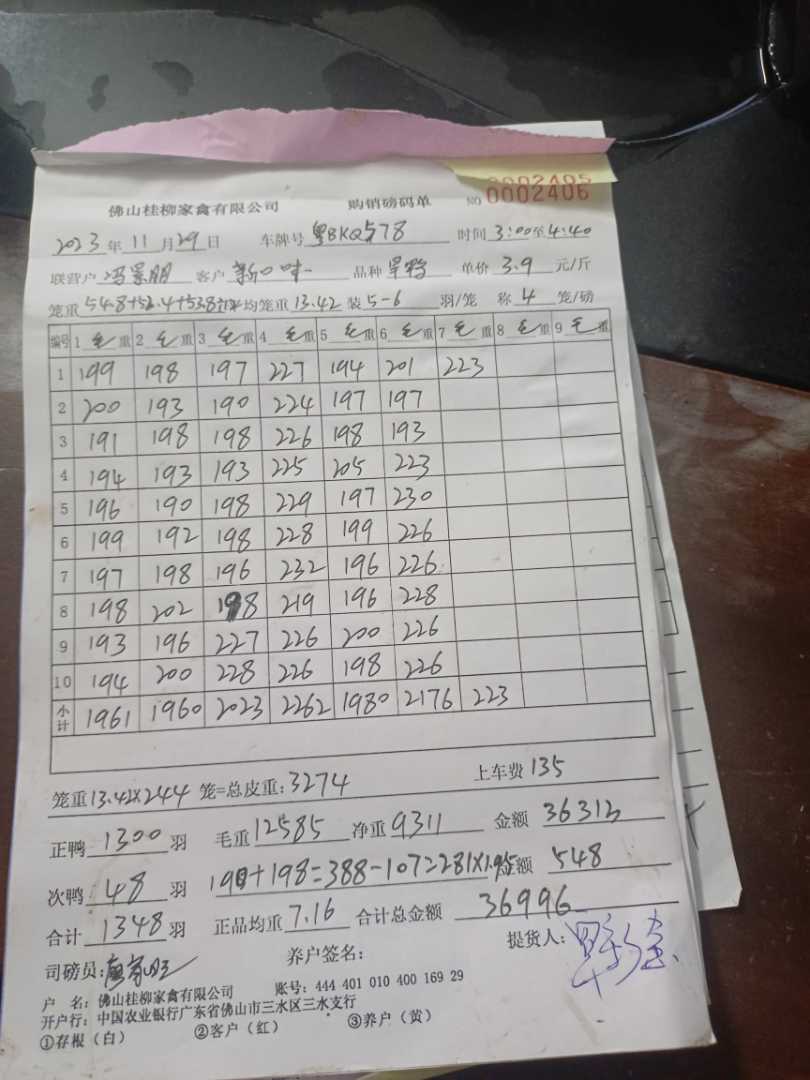 0002405
佛山桂柳家禽有限公司 购销磅码单 NO 0002406
2023年11月29日 车牌号 粤BKQ578 时间 3:00至4:40
联营户 冯景朋 客户 新口味 品种 旱鸭 单价 3.9 元/斤
笼重 54.8+52.4+53.8 均笼重 13.42 装 5-6 羽/笼 称 4 笼/磅
编号 1 毛重 2 毛重 3 毛重 4 毛重 5 毛重 6 毛重 7 毛重 8 毛重 9 毛重
1 199 198 197 227 194 201 223
2 200 193 190 224 197 197
3 191 198 198 226 198 193
4 194 193 193 225 205 223
5 196 190 198 229 197 230
6 199 192 198 228 199 226
7 197 198 196 232 196 226
8 198 202 198 219 196 228
9 193 196 227 226 200 226
10 194 200 228 226 198 226
小计 1961 1960 2023 2262 1980 2176 223
笼重 13.42×244 笼=总皮重:3274 上车费 135
正鸭 1300 羽 毛重 12585 净重 9311 金额 36313
次鸭 48 羽 190+198=388-107=281×1.95 金额 548
合计 1348 羽 正品均重 7.16 合计总金额 36996
司磅员: 养户签名: 提货人:
户 名:佛山桂柳家禽有限公司 账号:444 401 010 400 169 29
开户行:中国农业银行广东省佛山市三水区三水支行
①存根(白) ②客户(红) ③养户(黄)